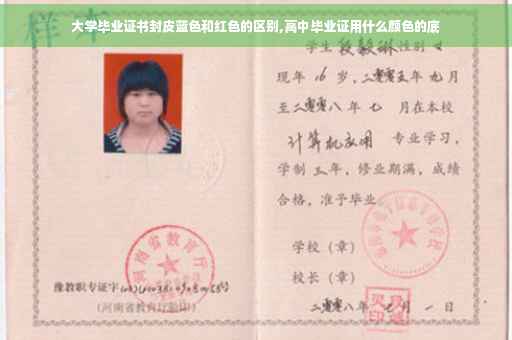 大学毕业证书封皮蓝色和红色的区别,高中毕业证用什么颜色的底
样本
学生 段毅琳 性别 女
现年 16 岁，二零零五年 九月
至二零零八年 七 月在本校
计算机应用 专业学习，
学制 三 年，修业期满，成绩
合格，准予毕业
学校（章）
校长（章）
二零零八年 七 月 一 日
河南省教育厅
豫教职专证字
(河南省教育厅验印)